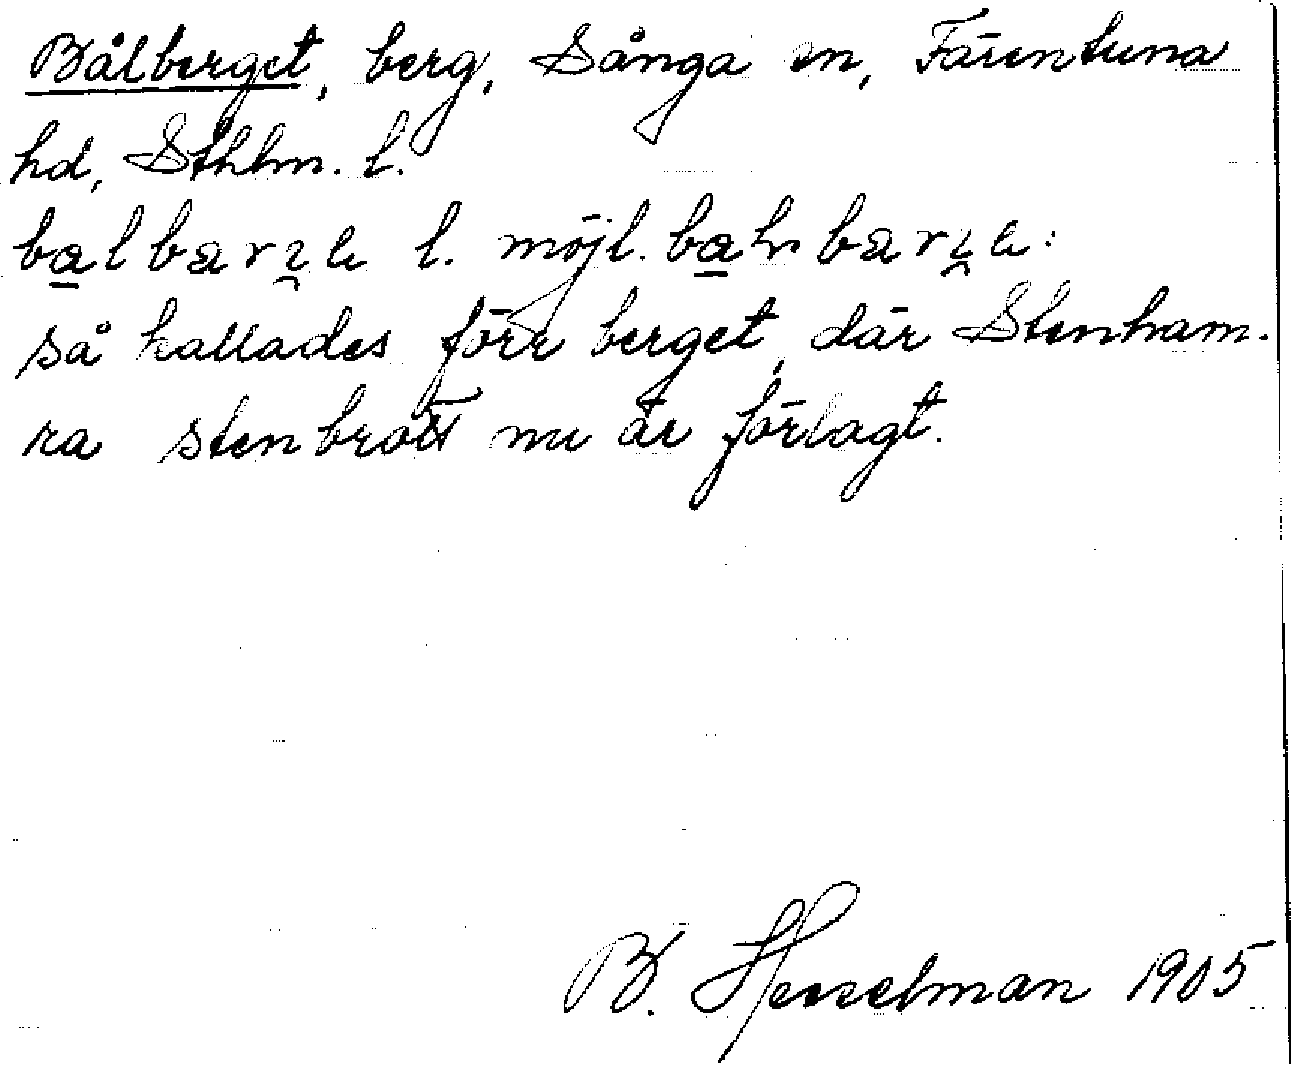 Bålberget, berg, Sånga sn, Färentuna
hd, Sthlm. l.
l. möjl.
så kallades förr berget, där Stenham-
ra stenbrott nu är förlagt.
B. Hesselman 1905